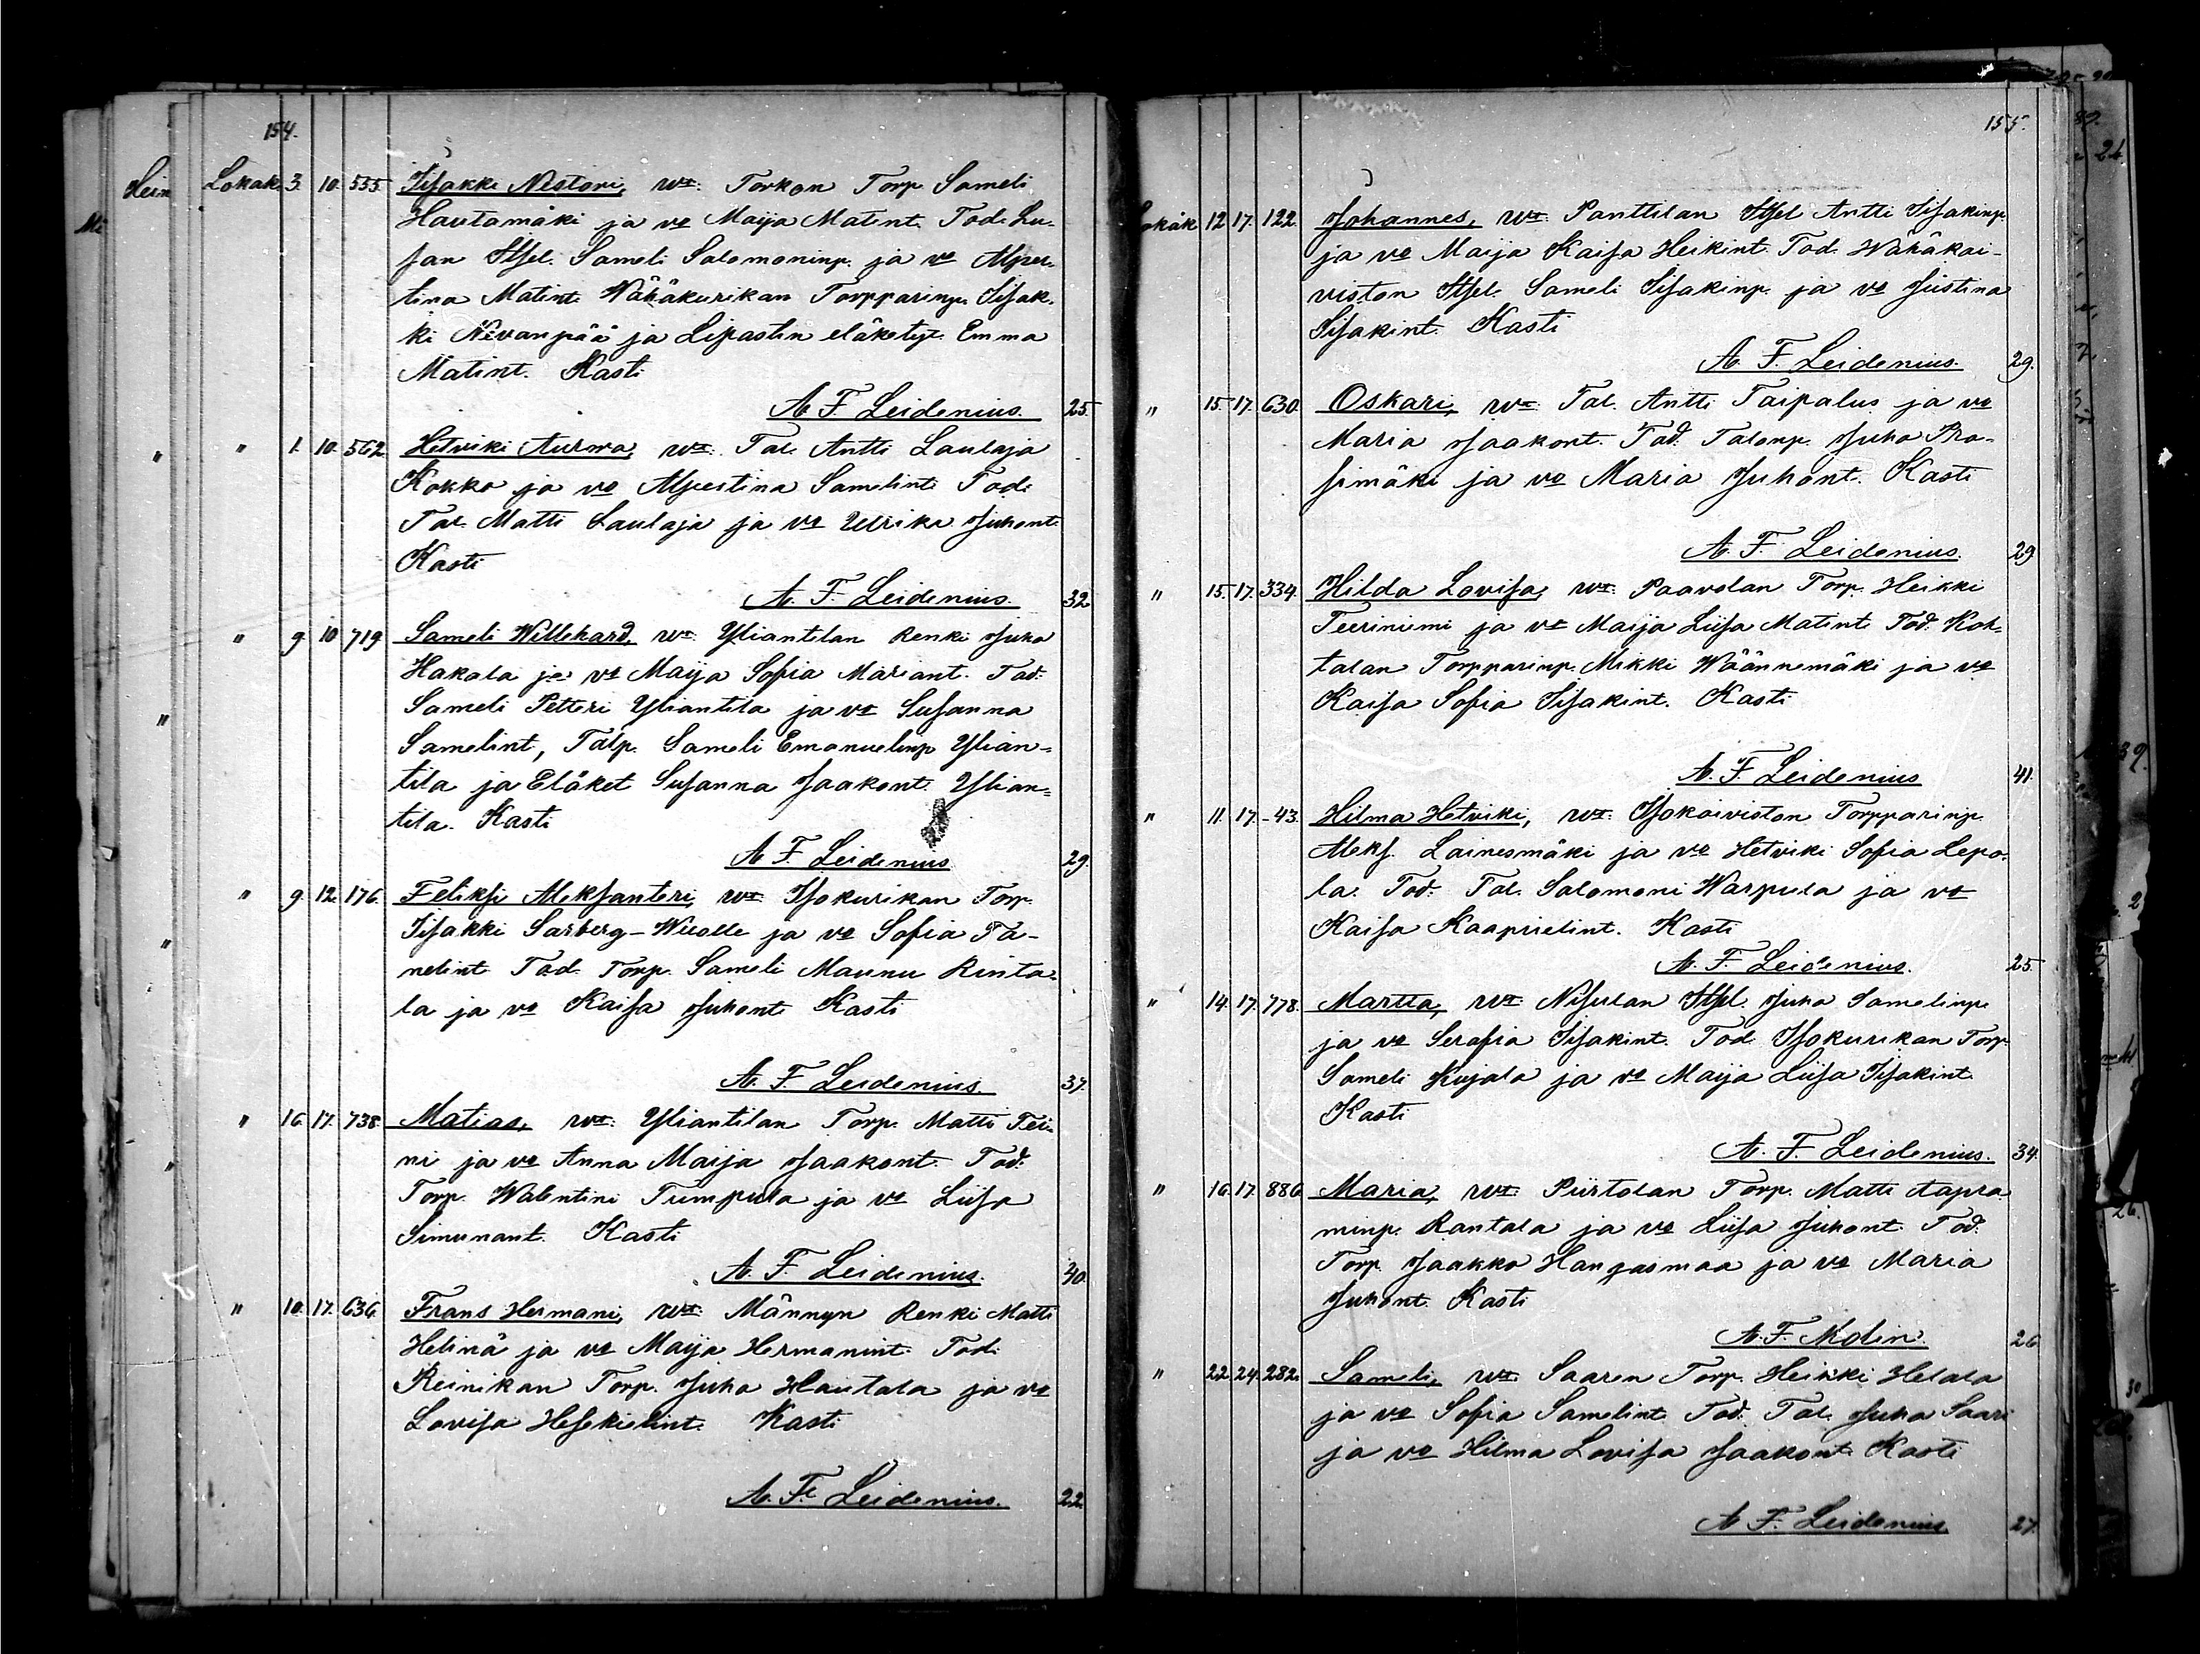 154.
Lokak. 3. 10. 555. Iisakki Nestori, wt: Torkon Torp Sameli
Hautamäki ja vo Maija Matint. Tod. Lu-
san Itsel. Sameli Salomoninp. ja vo Alper-
tina Matint. Wähäkurikan Torpparinp. Iisak-
ki Nevanpää ja Lipastin eläketyt. Emma
Matint. Kasti
A. F. Leidenius. 25.
" 1. 10. 562 Hetviki Aurora, wt: Tal. Antti Laulaja
Kokko ja vo Alpertina Samelint. Tod:
Tal. Matti Laulaja ja vo Ulrika Juhont.
Kasti
A. F. Leidenius. 32.
" 9. 10 719 Sameli Willehard, wt: Yliantilan Renki Juho
Hakala ja vo Maija Sofia Mariant. Tod:
Sameli Petteri Yliantila ja vo Susanna
Samelint, Talp. Sameli Emanuelinp Ylian-
tila ja Eläket Susanna Jaakont. Ylian-
tila. Kasti
A. F. Leidenius 29.
" 9. 12. 176. Feliksi Aleksanteri, wt: Isokurikan Torp.
Iisakki Sarberg-Wuolle ja vo Sofia Ta-
nelint. Tod. Torp. Sameli Maunu Rinta-
la ja vo Kaisa Juhont. Kasti
A. F. Leidenius. 37.
" 16. 17. 738. Matias, wt: Yliantilan Torp. Matti Tei-
ni ja vo Anna Maija Jaakont. Tod:
Torp. Walentini Tumpula ja vo Liisa
Simunant. Kasti
A. F. Leidenius. 40.
" 10. 17. 636. Frans Hermani, wt: Männyn Renki Matti
Helinä ja vo Maija Hermanint. Tod:
Reinikan Torp. Juho Hautala ja vo
Lovisa Hesekielint. Kasti
A. F. Leidenius. 22.
155.
Lokak 12. 17. 122. Johannes, wt: Panttilan Itsel Antti Iisakinp.
ja vo Maija Kaisa Heikint. Tod. Wähäkoi-
viston Itsel. Sameli Iisakinp. ja vo Justina
Iisakint. Kasti
A. F. Leidenius. 29.
" 15. 17. 630. Oskari, wt: Tal. Antti Taipalus ja vo
Maria Jaakont. Tod. Talonp. Juho Pra-
simäki ja vo Maria Juhont. Kasti
A. F. Leidenius. 29
" 15. 17. 334. Hilda Lovisa, wt: Paavolan Torp. Heikki
Teeriniemi ja vo Maija Liisa Matint. Tod. Koh-
talan Torpparinp. Mikki Wäännemäki ja vo
Kaisa Sofia Iisakint. Kasti
A. F. Leidenius 41.
" 11. 17. 43. Hilma Hetviki, wt: Isokoiviston Torpparinp.
Aleks. Lainesmäki ja vo Hetviki Sofia Lepo-
la. Tod: Tal. Salomoni Warpula ja vo
Kaisa Kaaprielint. Kasti
A. F. Leidenius. 25.
" 14. 17. 778. Martta, wt: Nisulan Itsel. Juho Samelinp.
ja vo Serafia Iisakint. Tod Isokurikan Torp.
Sameli Kujala ja vo Maija Liisa Iisakint.
Kasti
A. F. Leidenius. 34.
" 16. 17. 886 Maria, wt: Piirtolan Torp. Matti Aapra-
minp. Rantala ja vo Liisa Juhont. Tod.
Torp. Jaakko Hangasmaa ja vo Maria
Juhont. Kasti
A. F. Molin. 26
" 22. 24. 282. Sameli, wt: Saaren Torp. Heikki Helala
ja vo Sofia Samelint. Tod. Tal. Juha Saari
ja vo Hilma Lovisa Jaakont. Kasti
A. F. Leidenius. 27.